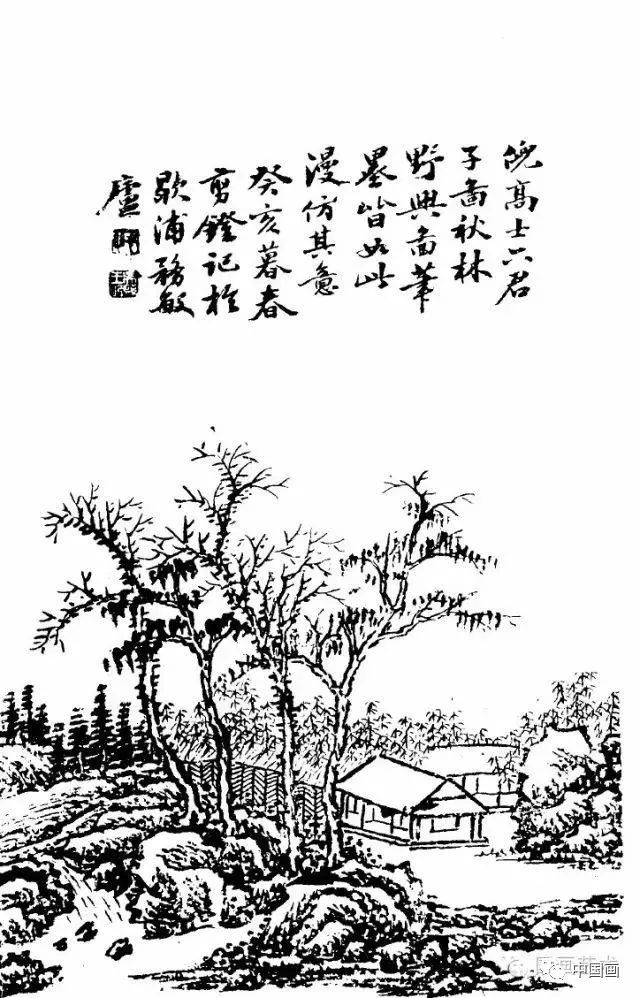 倪高士六君
子啚秋林
野興啚筆
墨皆如此
漫仿其意
癸亥暮春
剪鐙記於
歇浦務敏
廬
中国画